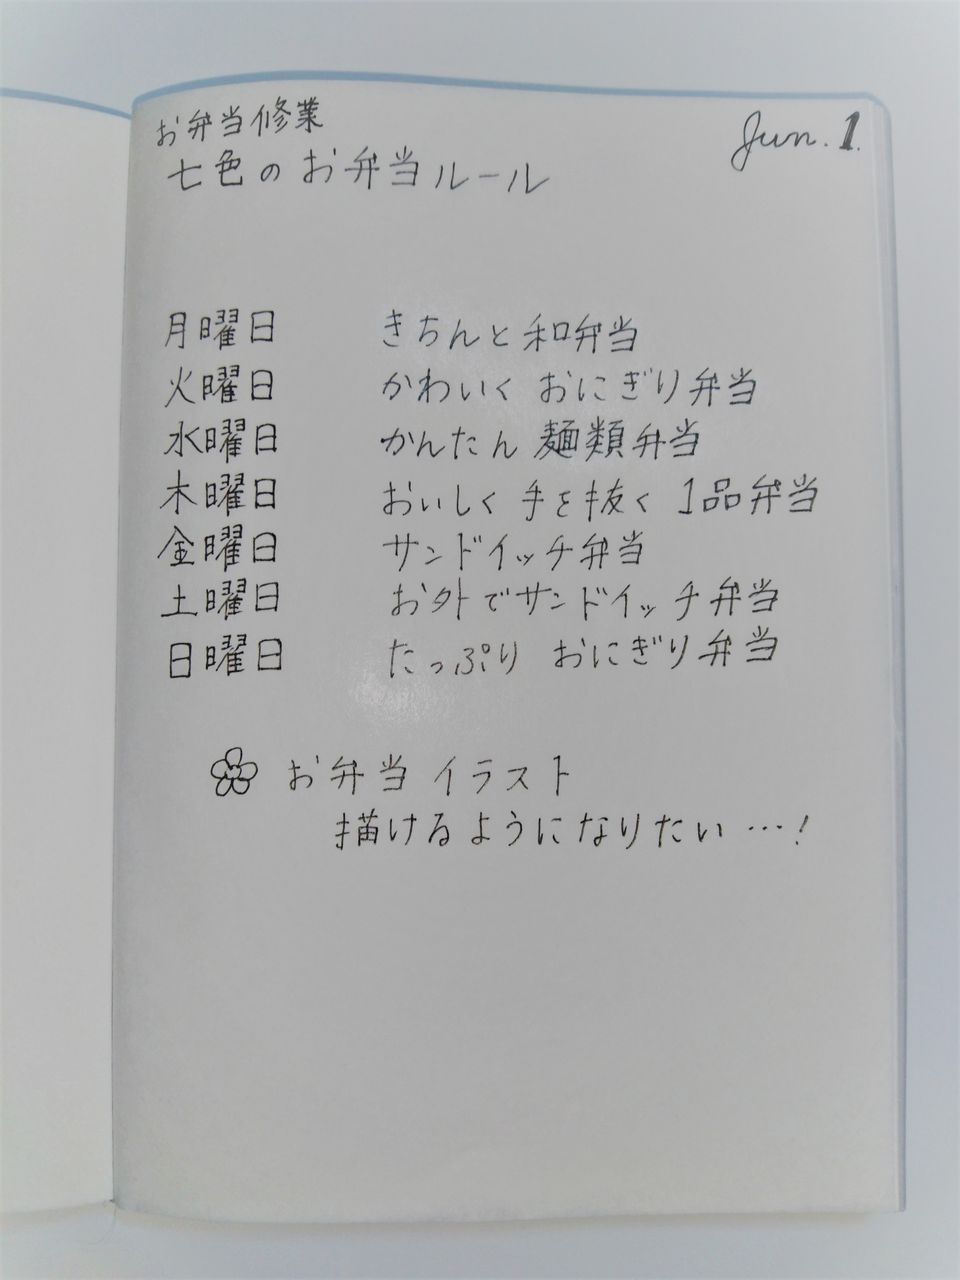 お弁当修業
Jun. 1.
七色のお弁当ルール
月曜日 きちんと和弁当
火曜日 かわいく おにぎり弁当
水曜日 かんたん 麺類弁当
木曜日 おいしく 手を抜く 1品弁当
金曜日 サンドイッチ弁当
土曜日 お外でサンドイッチ弁当
日曜日 たっぷり おにぎり弁当
お弁当 イラスト
描けるようになりたい…!